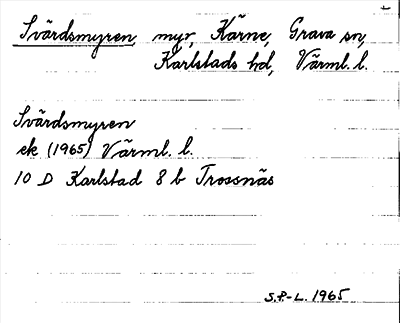 Svärdsmyren, myr, Kärne, Grava sn,
Karlstads hd, Värml. l.
Svärdsmyren
ek (1965) Värml. l.
10 D Karlstad 8 b Trossnäs
S.P-L. 1965